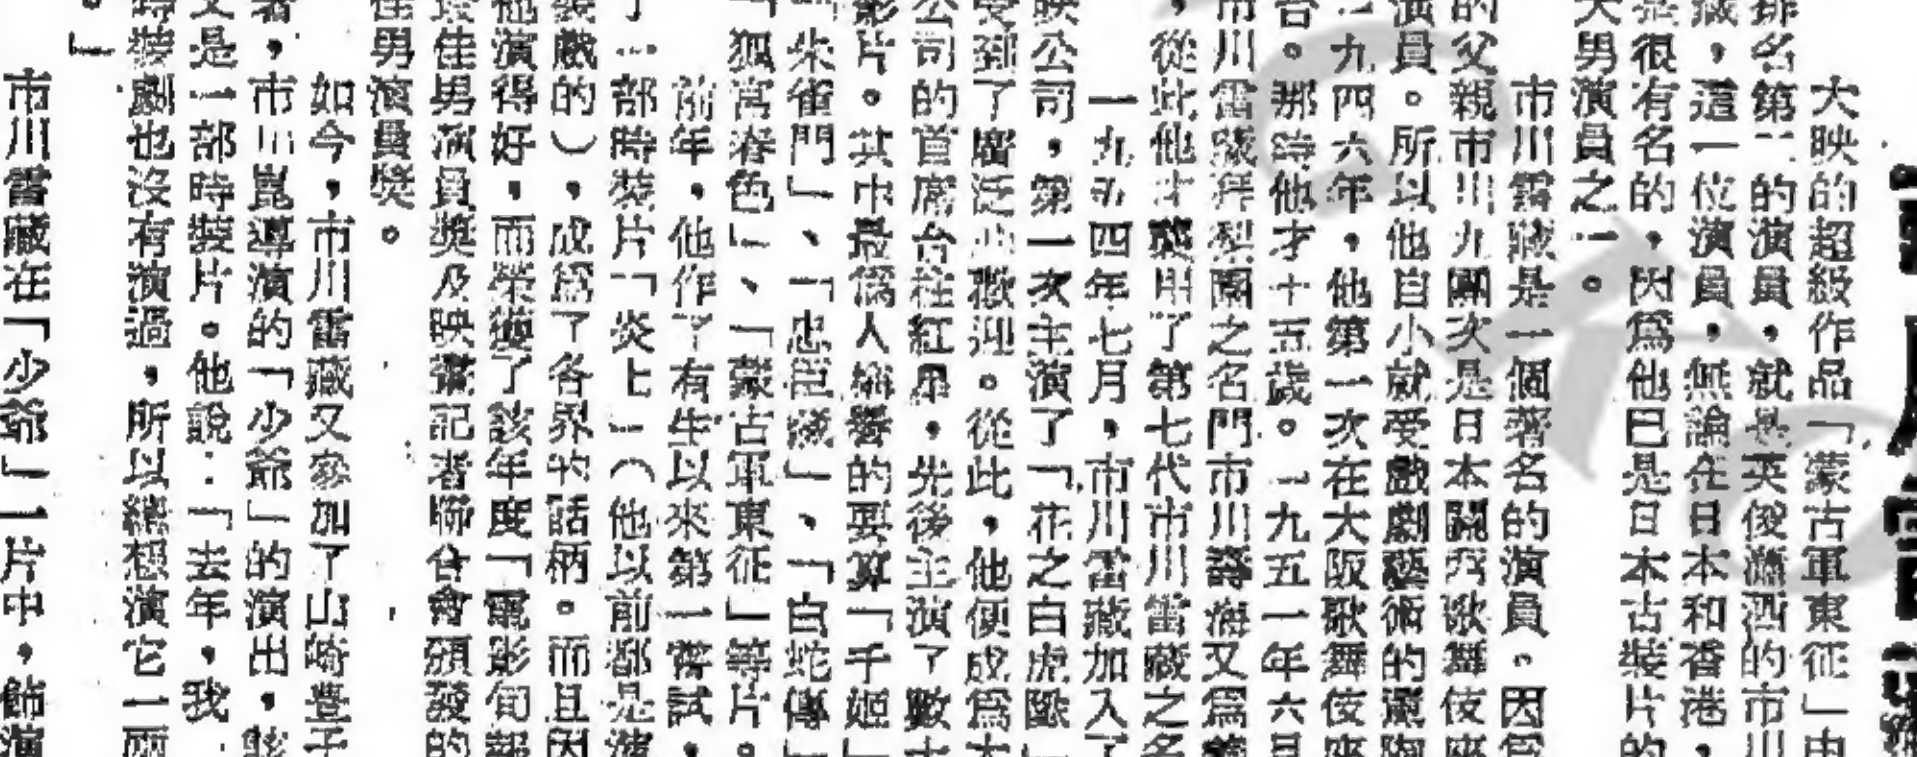 大映的超級作品「蒙古軍東征」中
排名第二的演員，就是英俊瀟洒的市川
藏，這一位演員，無論在日本和香港，
是很有名的，因爲他已是日本古裝片的
大男演員之一。
市川雷藏是一個著名的演員。因爲
的父親市川九團次是日本關西歌舞伎座
演員。所以他自小就受戲劇藝術的薰陶
一九四六年，他第一次在大阪歌舞伎座
台。那時他才十五歲。一九五一年六月
市川雷藏拜梨園之名門市川壽海又爲義
，從此他才襲用了第七代市川雷藏之名
一九五四年七月，市川雷藏加入了
映公司，第一次主演了「花之白虎隊」
受到了廣泛的歡迎。從此，他便成爲大
公司的首席台柱紅星，先後主演了數十
影片。其中最爲人稱譽的要算「千姬」
「朱雀門」、「忠臣藏」、「白蛇傳」
「狐宮春色」、「蒙古軍東征」等片。
前年，他作了有生以來第一嘗試，
了一部時裝片「炎上」（他以前都是演
裝戲的），成爲了各界的話柄。而且因
他演得好，而榮獲了該年度「電影旬報
最佳男演員獎及映畫記者聯合會頒發的
佳男演員獎。
如今，市川雷藏又參加了山崎豊子
著，市川崑導演的「少爺」的演出，該
又是一部時裝片。他說：「去年，我
時裝劇也沒有演過，所以總想演它一兩
。」
市川雷藏在「少爺」一片中，飾演